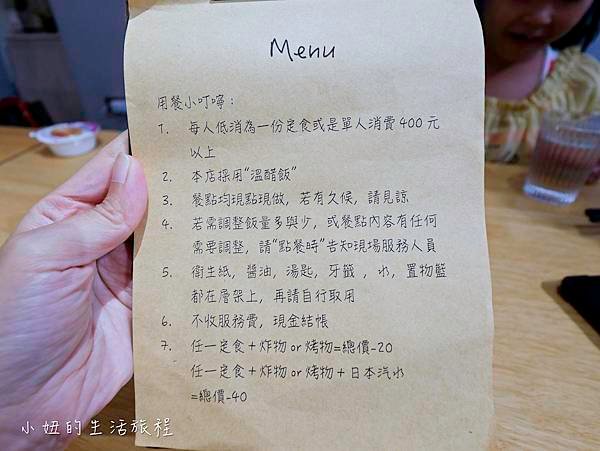 Menu
用餐小叮嚀：
1. 每人低消為一份定食或是單人消費400元
以上
2. 本店採用“溫醋飯”
3. 餐點均現點現做，若有久候，請見諒
4. 若需調整飯量多與少，或餐點內容有任何
需要調整，請“點餐時”告知現場服務人員
5. 衛生紙，醬油，湯匙，牙籤，水，置物籃
都在層架上，再請自行取用
6. 不收服務費，現金結帳
7. 任一定食＋炸物or烤物=總價-20
任一定食＋炸物or烤物＋日本汽水
=總價-40
小妞的生活旅程